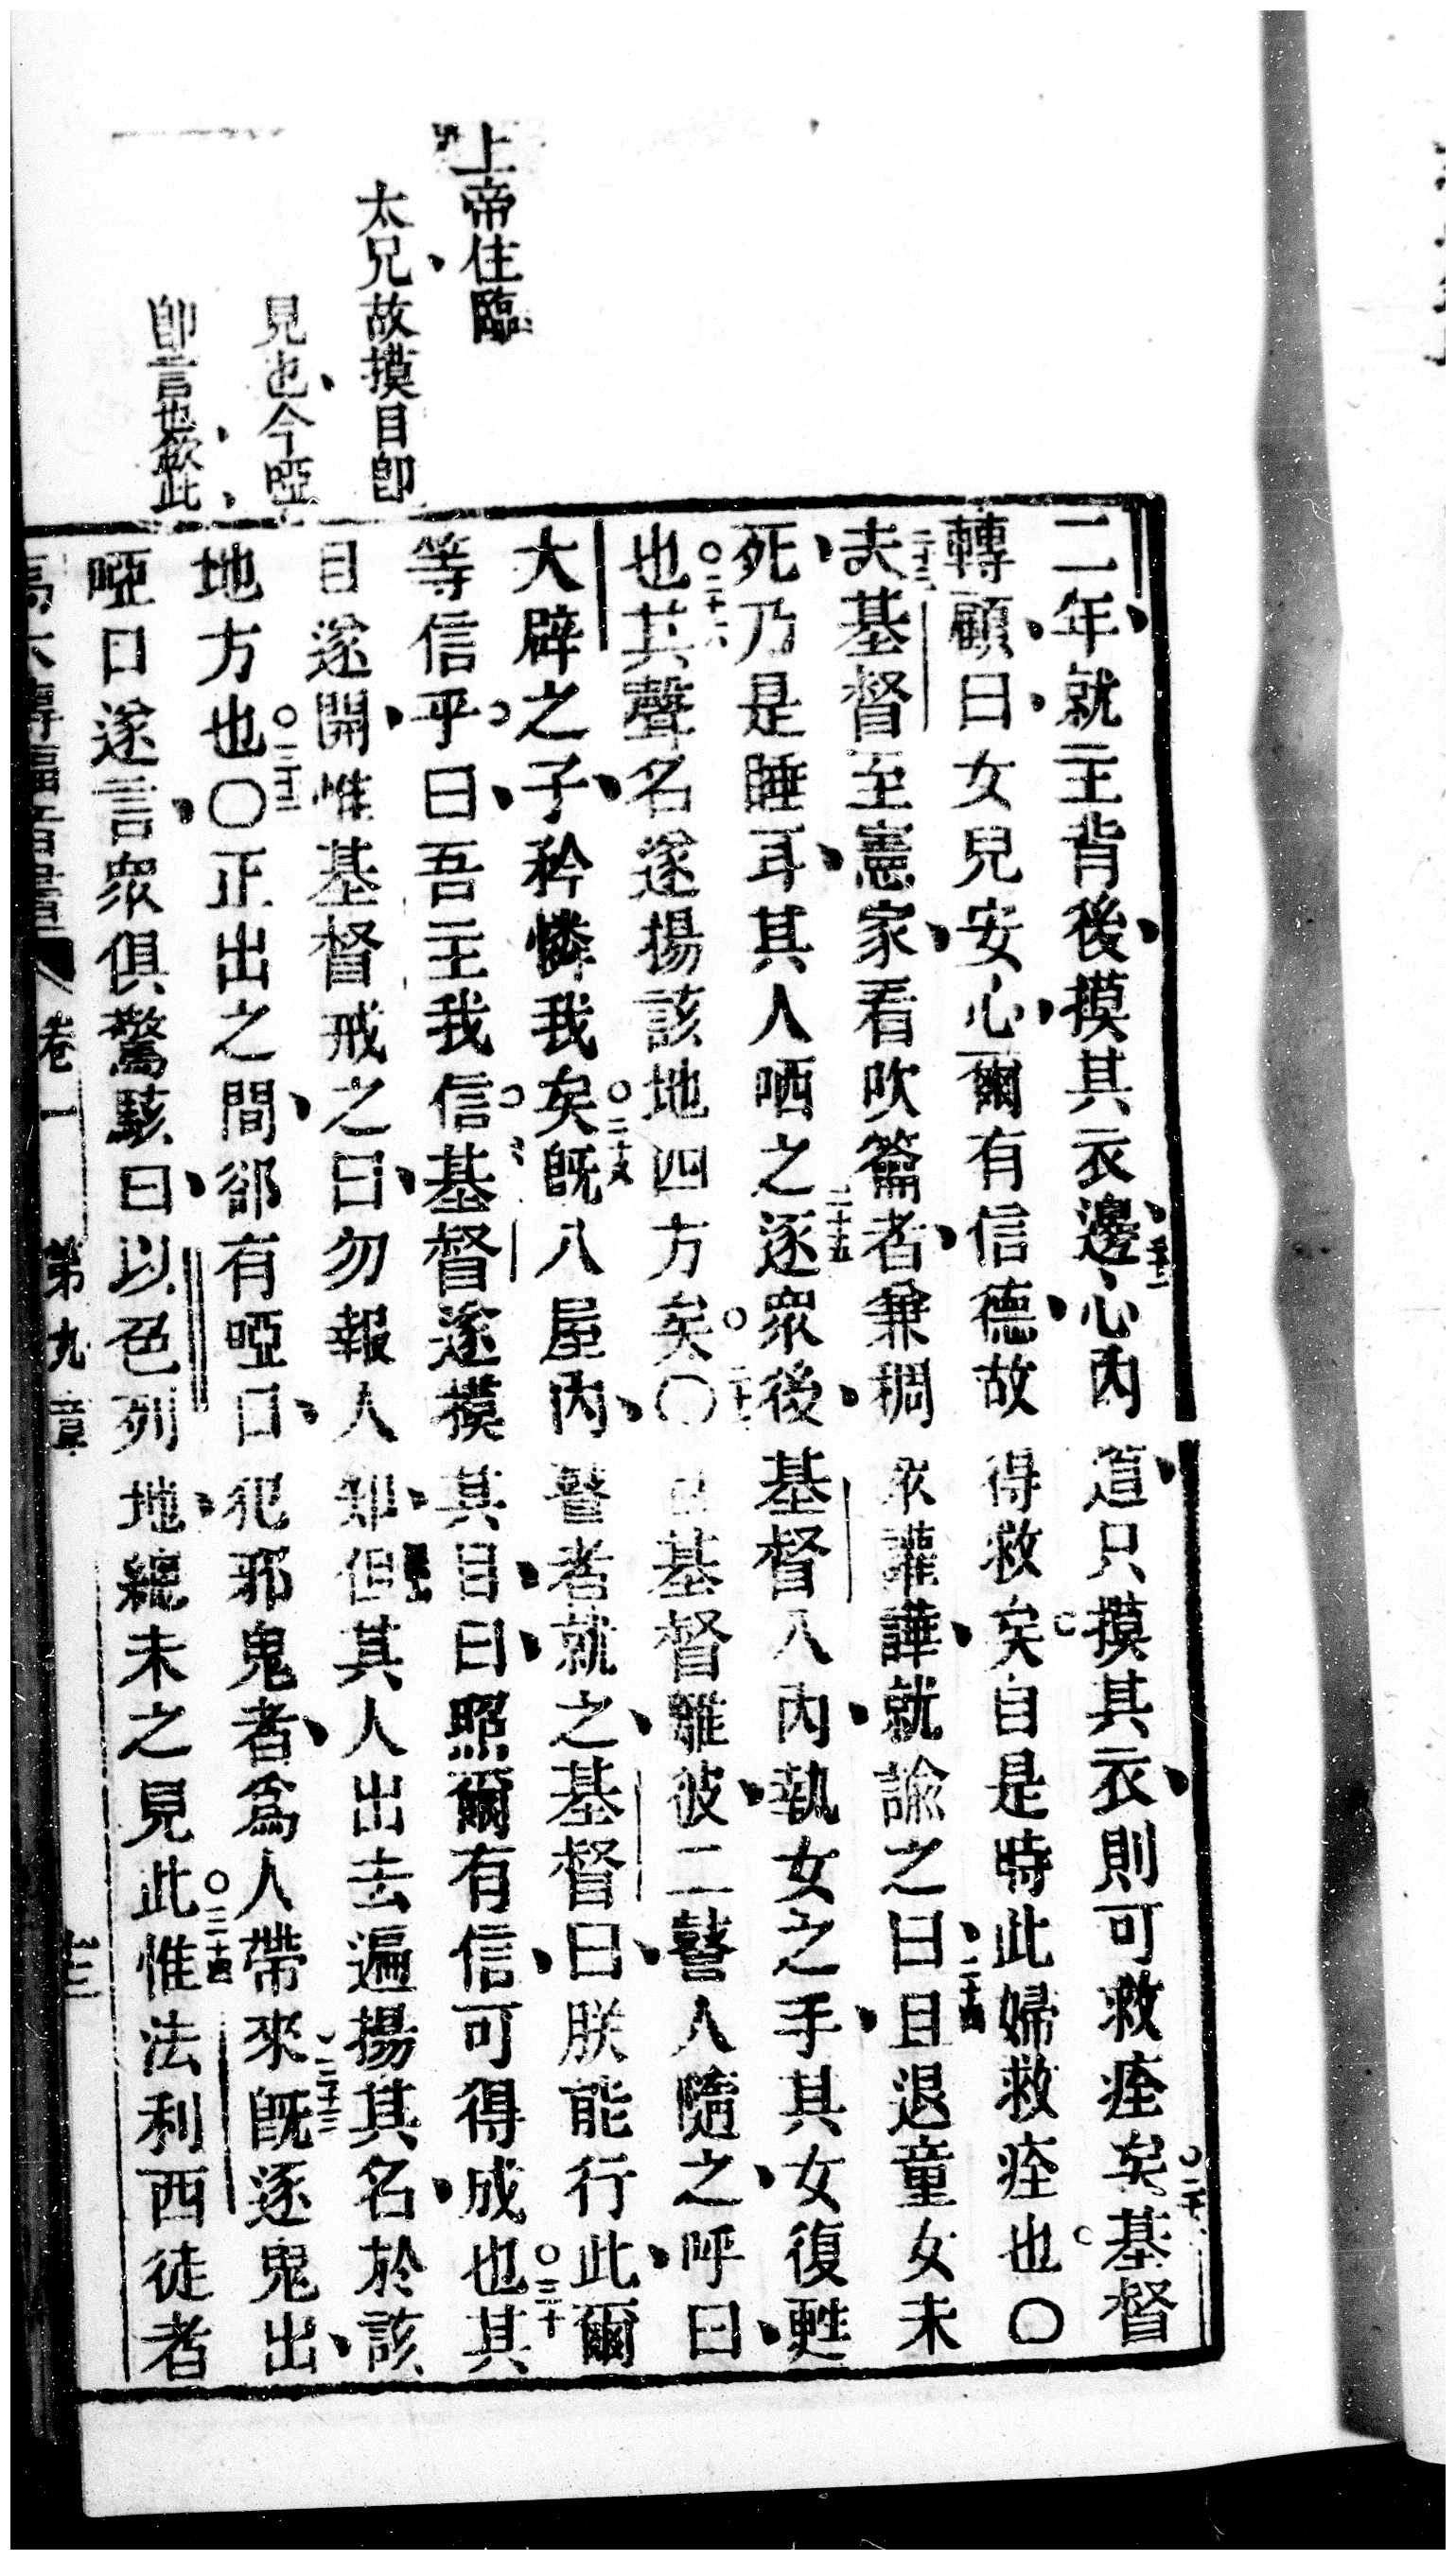 上帝住臨
太兄故摸目即
見也今啞
即言也欽此
二年就主背後摸其衣邊二十一心內道只摸其衣則可救痊矣○二十二基督
轉顧曰女兒安心爾有信德故得救矣自是時此婦救痊也○
二十三夫基督至憲家看吹籥者兼稠衆讙譁就諭之曰二十四且退童女未
死乃是睡耳其人哂之二十五逐衆後基督入內執女之手其女復甦
也○二十六其聲名遂揚該地四方矣○二十七○基督離彼二瞽人隨之呼曰
大辟之子矜憐我矣○二十八既入屋內瞽者就之基督曰朕能行此爾
等信乎曰吾主我信基督遂摸其目曰照爾有信可得成也○三十其
目遂開惟基督戒之曰勿報人知但其人出去遍揚其名於該
地方也○三十二○正出之間卻有啞口犯邪鬼者為人帶來三十三既逐鬼出
啞口遂言衆俱驚駭曰以色列地總未之見此○三十四惟法利西徒者
卷一 第九章